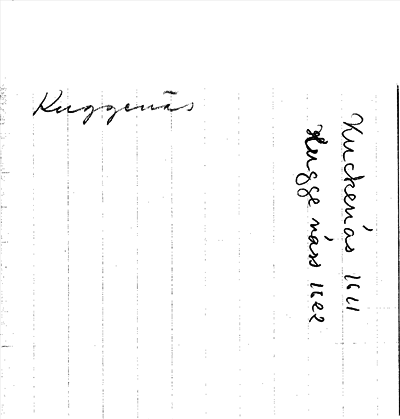 Kuggenäs
Kuckenäs 1611
Kugge näss 1622